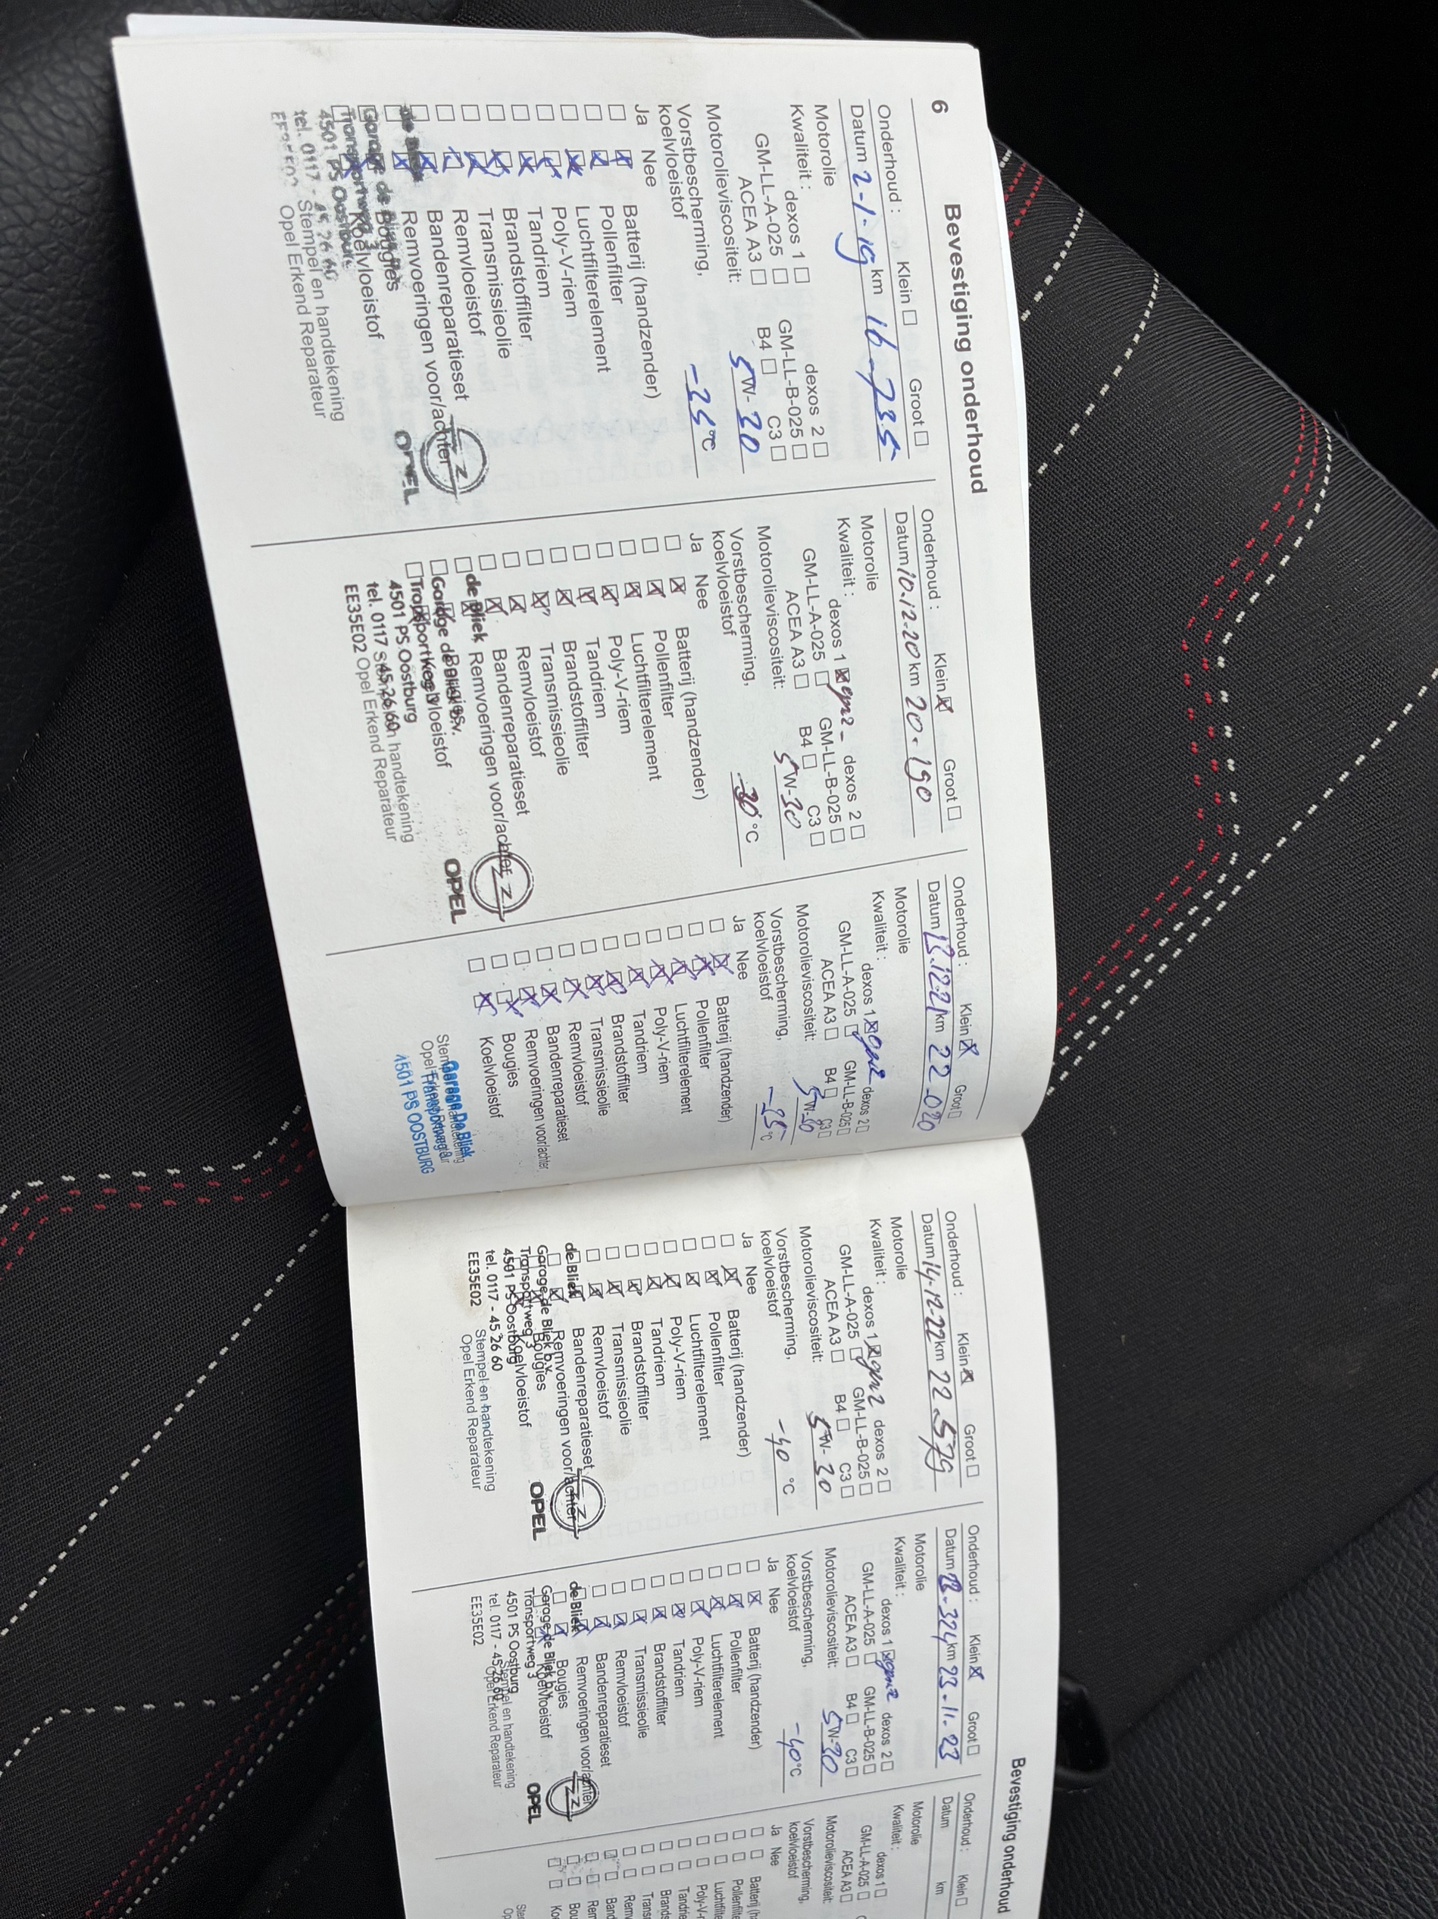 6
Bevestiging onderhoud
Onderhoud : Klein Groot
Datum 2-1-19 km 16.735
Motorolie
Kwaliteit : dexos 1 dexos 2
GM-LL-A-025 GM-LL-B-025
ACEA A3 B4 C3
Motorolieviscositeit: 5W-30
Vorstbescherming,
koelvloeistof -25 °C
Ja Nee
Batterij (handzender)
Pollenfilter
Luchtfilterelement
Poly-V-riem
Tandriem
Brandstoffilter
Transmissieolie
Remvloeistof
Bandenreparatieset
Remvoeringen voor/achter
Bougies
Koelvloeistof
de Bliek
Garage de Bliek b.v.
Transportweg 3
4501 PS Oostburg
tel. 0117 - 45 26 60
Stempel en handtekening
Opel Erkend Reparateur
OPEL
Onderhoud : Klein Groot
Datum 10.12-20 km 20.190
Motorolie
Kwaliteit : dexos 1 gen2 dexos 2
GM-LL-A-025 GM-LL-B-025
ACEA A3 B4 C3
Motorolieviscositeit: 5W-30
Vorstbescherming,
koelvloeistof -30 °C
Ja Nee
Batterij (handzender)
Pollenfilter
Luchtfilterelement
Poly-V-riem
Tandriem
Brandstoffilter
Transmissieolie
Remvloeistof
Bandenreparatieset
Remvoeringen voor/achter
Bougies
Koelvloeistof
de Bliek
Garage de Bliek b.v.
Transportweg 3
4501 PS Oostburg
tel. 0117 - 45 26 60
EE35E02
Stempel en handtekening
Opel Erkend Reparateur
OPEL
Onderhoud : Klein Groot
Datum 13.12-21 km 22.020
Motorolie
Kwaliteit : dexos 1 gen2 dexos 2
GM-LL-A-025 GM-LL-B-025
ACEA A3 B4 C3
Motorolieviscositeit: 5W-30
Vorstbescherming,
koelvloeistof -25 °C
Ja Nee
Batterij (handzender)
Pollenfilter
Luchtfilterelement
Poly-V-riem
Tandriem
Brandstoffilter
Transmissieolie
Remvloeistof
Bandenreparatieset
Remvoeringen voor/achter
Bougies
Koelvloeistof
Stempel en handtekening
Opel Erkend Reparateur
Garage De Bliek
Transportweg 3
4501 PS OOSTBURG
Onderhoud : Klein Groot
Datum 14-12-22 km 22.579
Motorolie
Kwaliteit : dexos 1 gen2 dexos 2
GM-LL-A-025 GM-LL-B-025
ACEA A3 B4 C3
Motorolieviscositeit: 5W-30
Vorstbescherming,
koelvloeistof -40 °C
Ja Nee
Batterij (handzender)
Pollenfilter
Luchtfilterelement
Poly-V-riem
Tandriem
Brandstoffilter
Transmissieolie
Remvloeistof
Bandenreparatieset
Remvoeringen voor/achter
Bougies
Koelvloeistof
de Bliek
Garage de Bliek b.v.
Transportweg 3
4501 PS Oostburg
tel. 0117 - 45 26 60
EE35E02
Stempel en handtekening
Opel Erkend Reparateur
OPEL
Bevestiging onderhoud
Onderhoud : Klein Groot
Datum 23.324 km 23.11.23
Motorolie
Kwaliteit : dexos 1 gen2 dexos 2
GM-LL-A-025 GM-LL-B-025
ACEA A3 B4 C3
Motorolieviscositeit: 5W-30
Vorstbescherming,
koelvloeistof -40 °C
Ja Nee
Batterij (handzender)
Pollenfilter
Luchtfilterelement
Poly-V-riem
Tandriem
Brandstoffilter
Transmissieolie
Remvloeistof
Bandenreparatieset
Remvoeringen voor/achter
Bougies
Koelvloeistof
de Bliek
Garage de Bliek b.v.
Transportweg 3
4501 PS Oostburg
tel. 0117 - 45 26 60
EE35E02
Stempel en handtekening
Opel Erkend Reparateur
OPEL
Onderhoud : Klein
Datum km
Motorolie
Kwaliteit : dexos 1
GM-LL-A-025
ACEA A3
Motorolieviscositeit:
Vorstbescherming,
koelvloeistof
Ja Nee